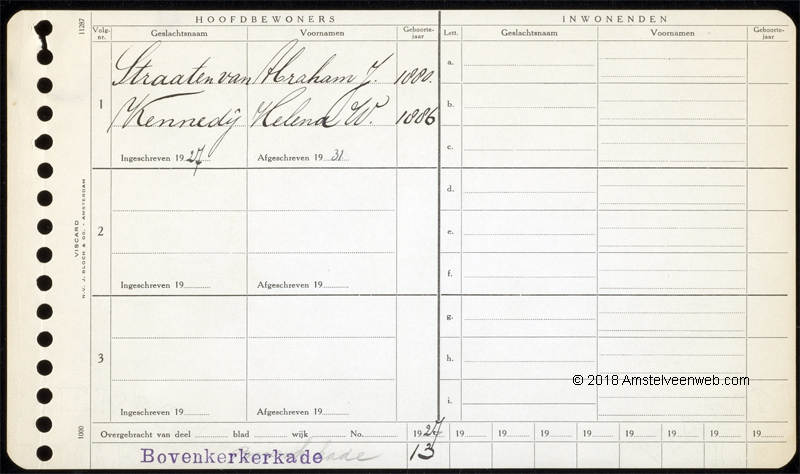 HOOFDBEWONERS
INWONENDEN
Volg-nr. Geslachtsnaam Voornamen Geboorte-jaar
Lett. Geslachtsnaam Voornamen Geboorte-jaar
11287
1
Straaten van Abraham J. 1880.
Kennedij Helena W. 1886
Ingeschreven 1927 Afgeschreven 1931
a.
b.
c.
2
Ingeschreven 19 Afgeschreven 19
d.
e.
f.
3
Ingeschreven 19 Afgeschreven 19
g.
h.
i.
VISCARD
N.V. J. BLOCH & CO. - AMSTERDAM
1000
© 2018 Amstelveenweb.com
Overgebracht van deel blad wijk No. 1927 19 19 19 19 19 19 19 19
Bovenkerkerkade 13